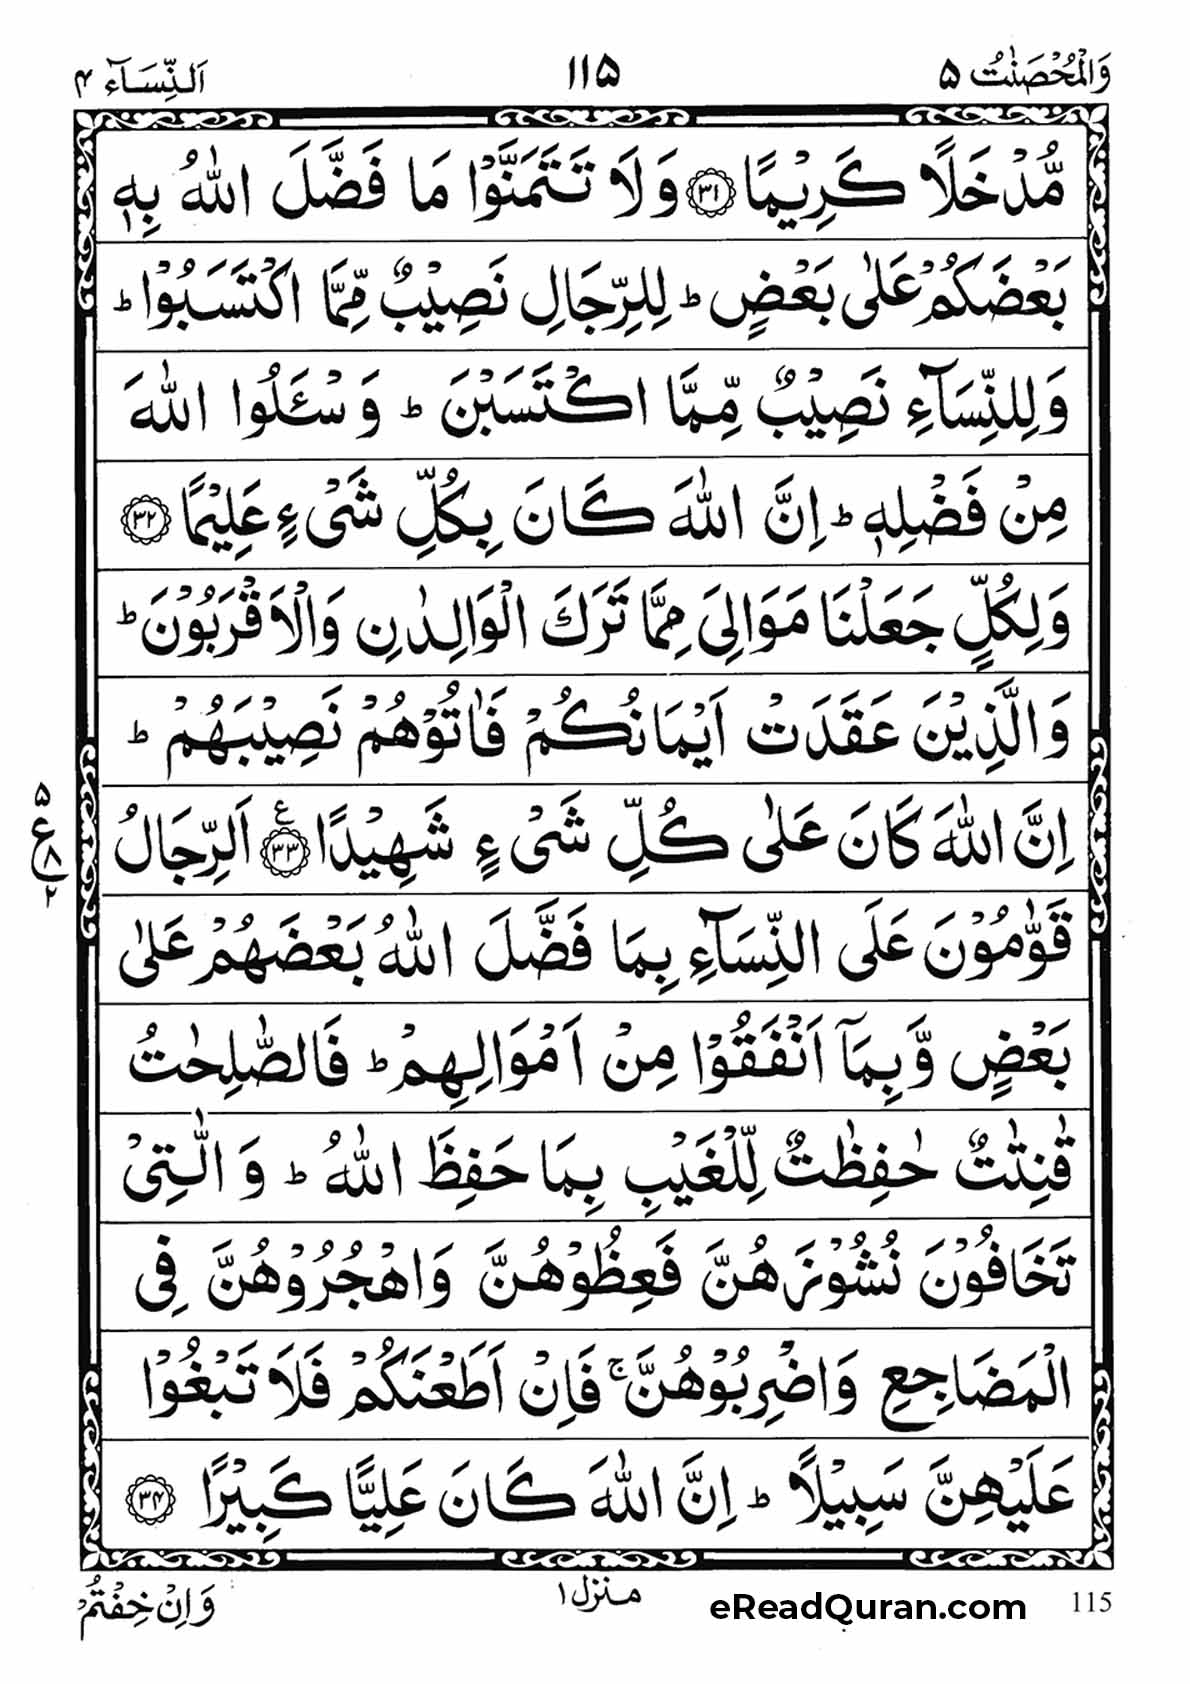 وَالْمُحْصَنٰتُ ۵
۱۱۵
اَلنِّسَآء ۴
مُّدْخَلًا كَرِيْمًا ﴿۳۱﴾ وَلَا تَتَمَنَّوْا مَا فَضَّلَ اللّٰهُ بِهٖ
بَعْضَكُمْ عَلٰى بَعْضٍ ؕ لِلرِّجَالِ نَصِيْبٌ مِّمَّا اكْتَسَبُوْا ؕ
وَلِلنِّسَآءِ نَصِيْبٌ مِّمَّا اكْتَسَبْنَ ؕ وَسْـَٔلُوا اللّٰهَ
مِنْ فَضْلِهٖ ؕ اِنَّ اللّٰهَ كَانَ بِكُلِّ شَىْءٍ عَلِيْمًا ﴿۳۲﴾
وَلِكُلٍّ جَعَلْنَا مَوَالِىَ مِمَّا تَرَكَ الْوَالِدٰنِ وَالْاَقْرَبُوْنَ ؕ
وَالَّذِيْنَ عَقَدَتْ اَيْمَانُكُمْ فَاٰتُوْهُمْ نَصِيْبَهُمْ ؕ
اِنَّ اللّٰهَ كَانَ عَلٰى كُلِّ شَىْءٍ شَهِيْدًا ﴿۳۳﴾ ع اَلرِّجَالُ
۵
ع
۸
۲
قَوّٰمُوْنَ عَلَى النِّسَآءِ بِمَا فَضَّلَ اللّٰهُ بَعْضَهُمْ عَلٰى
بَعْضٍ وَّبِمَآ اَنْفَقُوْا مِنْ اَمْوَالِهِمْ ؕ فَالصّٰلِحٰتُ
قٰنِتٰتٌ حٰفِظٰتٌ لِّلْغَيْبِ بِمَا حَفِظَ اللّٰهُ ؕ وَالّٰتِىْ
تَخَافُوْنَ نُشُوْزَهُنَّ فَعِظُوْهُنَّ وَاهْجُرُوْهُنَّ فِى
الْمَضَاجِعِ وَاضْرِبُوْهُنَّ ۚ فَاِنْ اَطَعْنَكُمْ فَلَا تَبْغُوْا
عَلَيْهِنَّ سَبِيْلًا ؕ اِنَّ اللّٰهَ كَانَ عَلِيًّا كَبِيْرًا ﴿۳۴﴾
وَاِنْ خِفْتُمْ
منزل ۱
eReadQuran.com
115